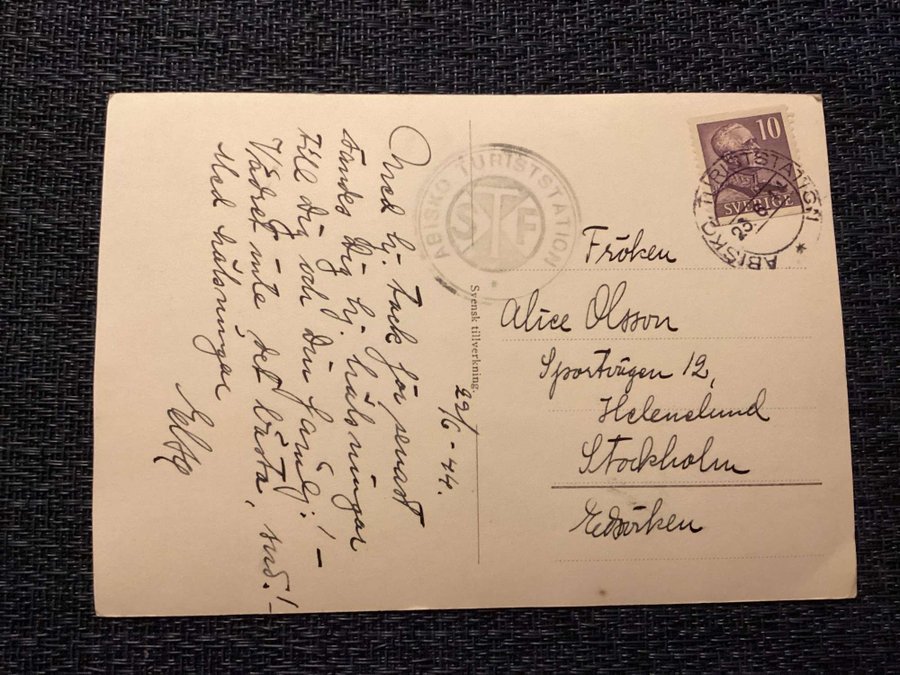 22/6-44.
Med hj. tack för senast
sändes Dig hj. hälsningar
till dig och Din familj! –
Vädret inte det bästa,
Med hälsningar
ABISKO TURISTSTATION
STF
Svensk tillverkning.
10
SVERIGE
ABISKO TURISTSTATION
23.6
Fröken
Alice Olsson
Sportvägen 12,
Helenelund
Stockholm